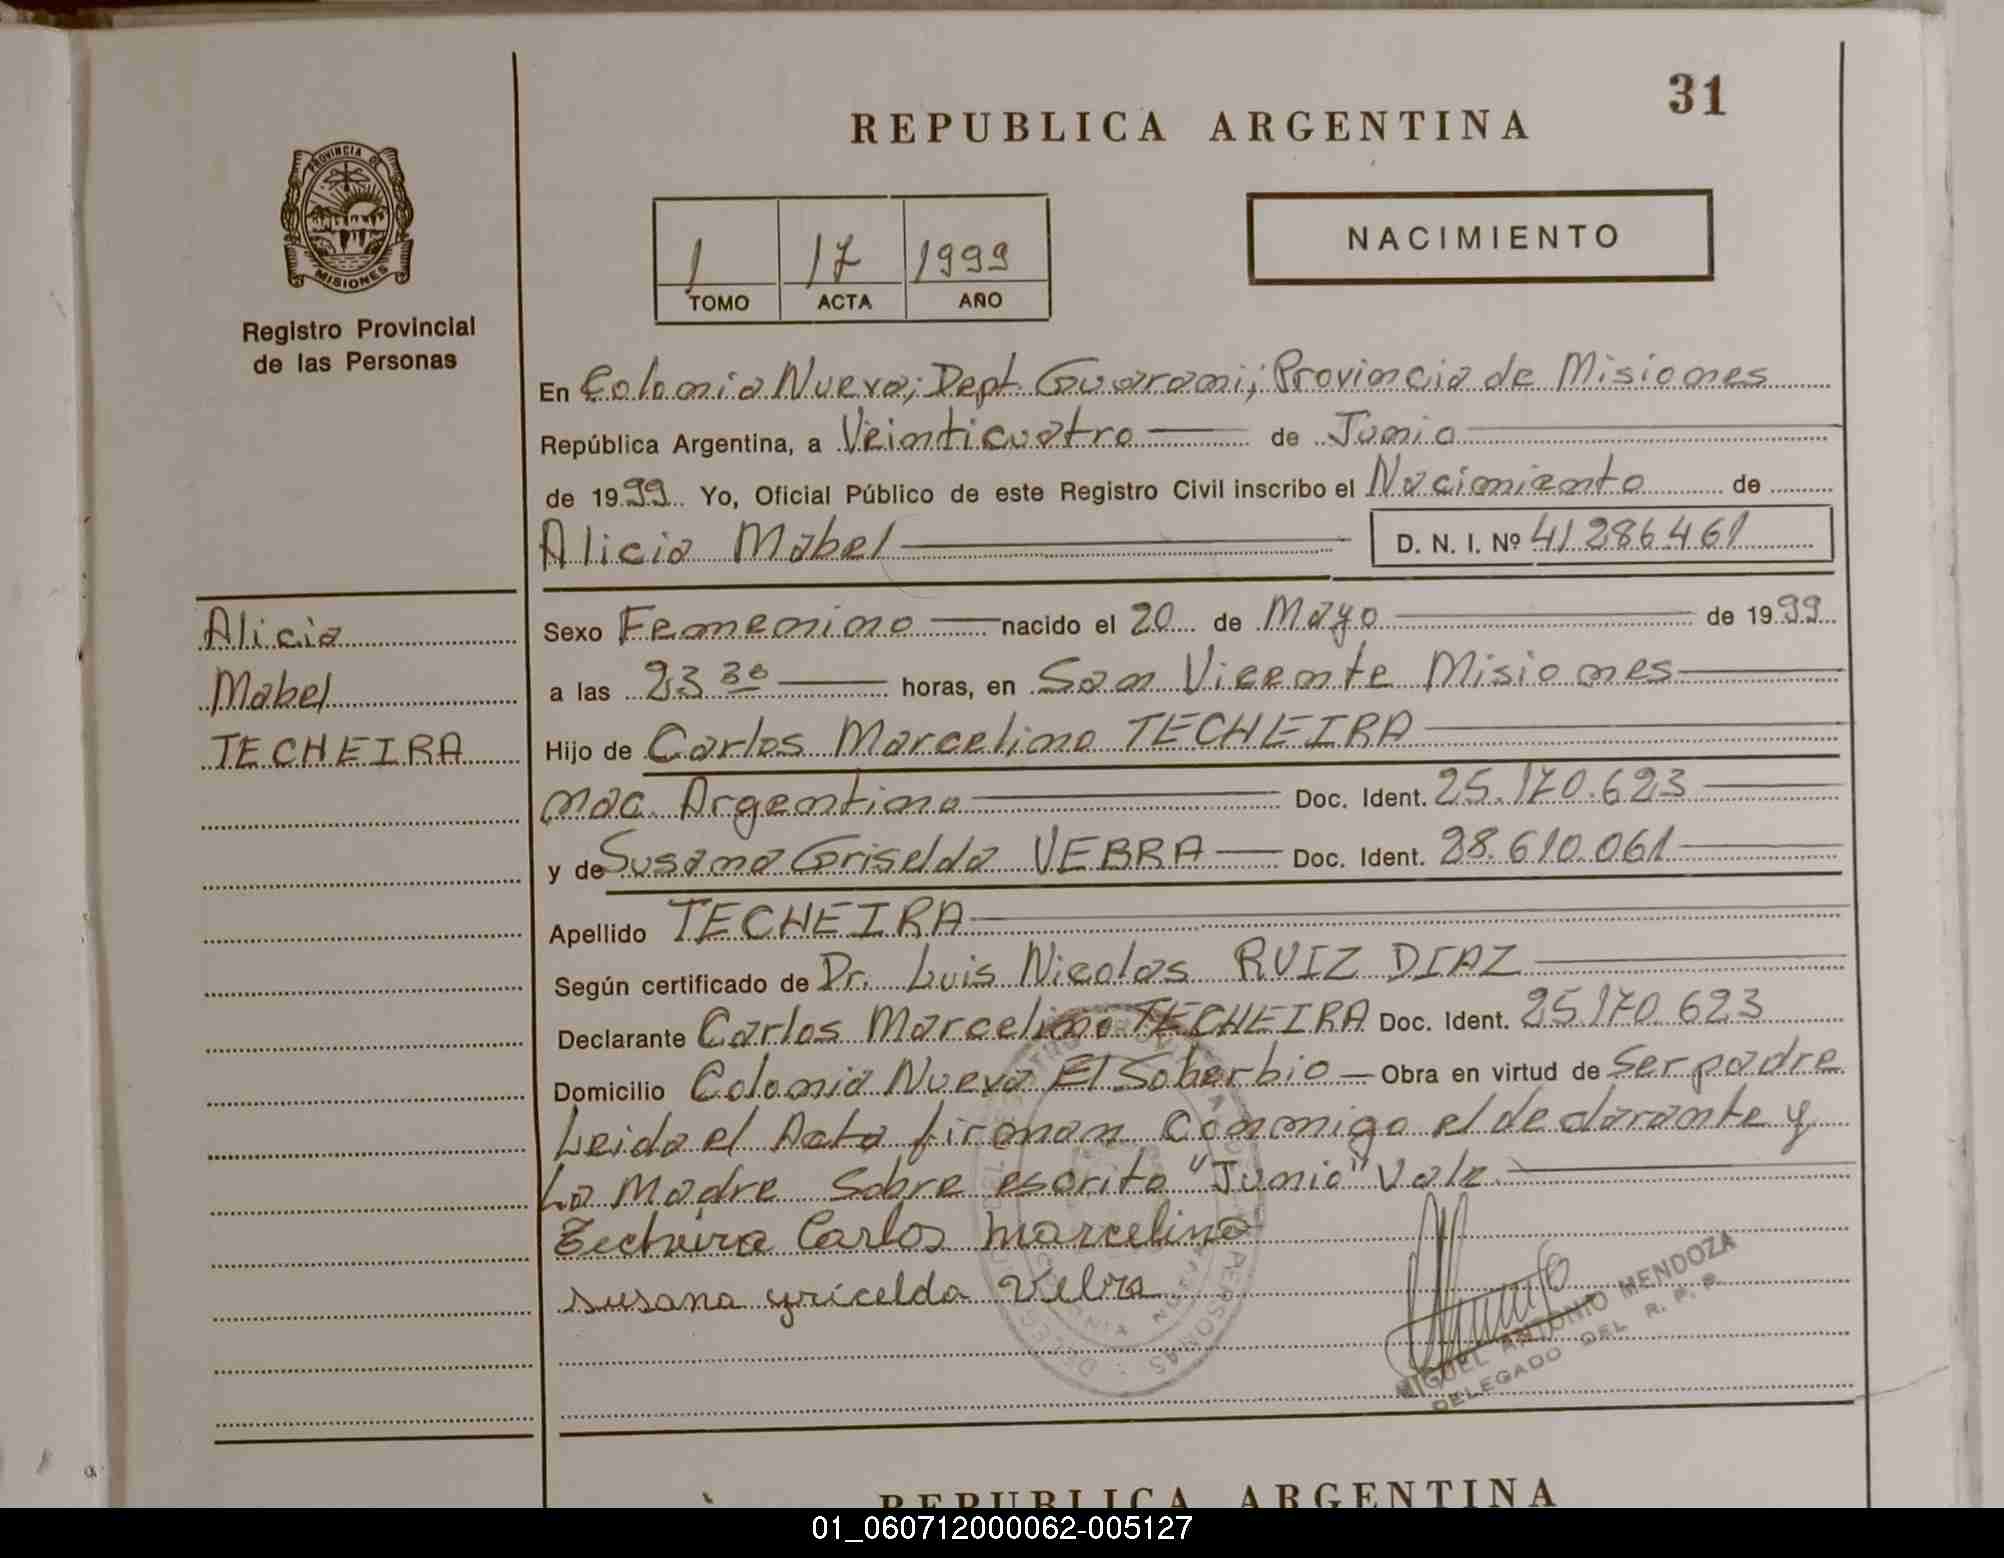 31
REPUBLICA ARGENTINA
PROVINCIA DE
MISIONES
Registro Provincial
de las Personas
NACIMIENTO
1 17 1999
TOMO ACTA AÑO
En Colonia Nueva; Dept. Guarani; Provincia de Misiones
República Argentina, a Veinticuatro de Junio
de 1999 Yo, Oficial Público de este Registro Civil inscribo el Nacimiento de
Alicia Mabel D. N. I. Nº 41286461
Alicia
Mabel
TECHEIRA
Sexo Femenino nacido el 20 de Mayo de 1999
a las 23 30 horas, en San Vicente Misiones
Hijo de Carlos Marcelino TECHEIRA
nac. Argentina Doc. Ident. 25.170.623
y de Susana Griselda VEBRA Doc. Ident. 28.610.061
Apellido TECHEIRA
Según certificado de Dr. Luis Nicolas RUIZ DIAZ
Declarante Carlos Marcelino TECHEIRA Doc. Ident. 25170623
Domicilio Colonia Nueva El Soberbio Obra en virtud de Ser padre
Leida el Acta firman Conmigo el declarante y
La Madre Sobre escrito "Junio" Vale
Techeira Carlos Marcelino
Susana gricelda Vebra
MIGUEL ANTONIO MENDOZA
DELEGADO DEL R. P. P.
REPUBLICA ARGENTINA
01_060712000062-005127